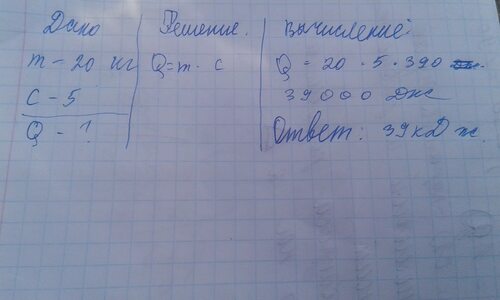 Дано
m - 20 кг
C - 5
Q - ?
Решение.
Q = m · c
Вычисление:
Q = 20 · 5 · 390
39000 Дж
Ответ: 39 кДж.